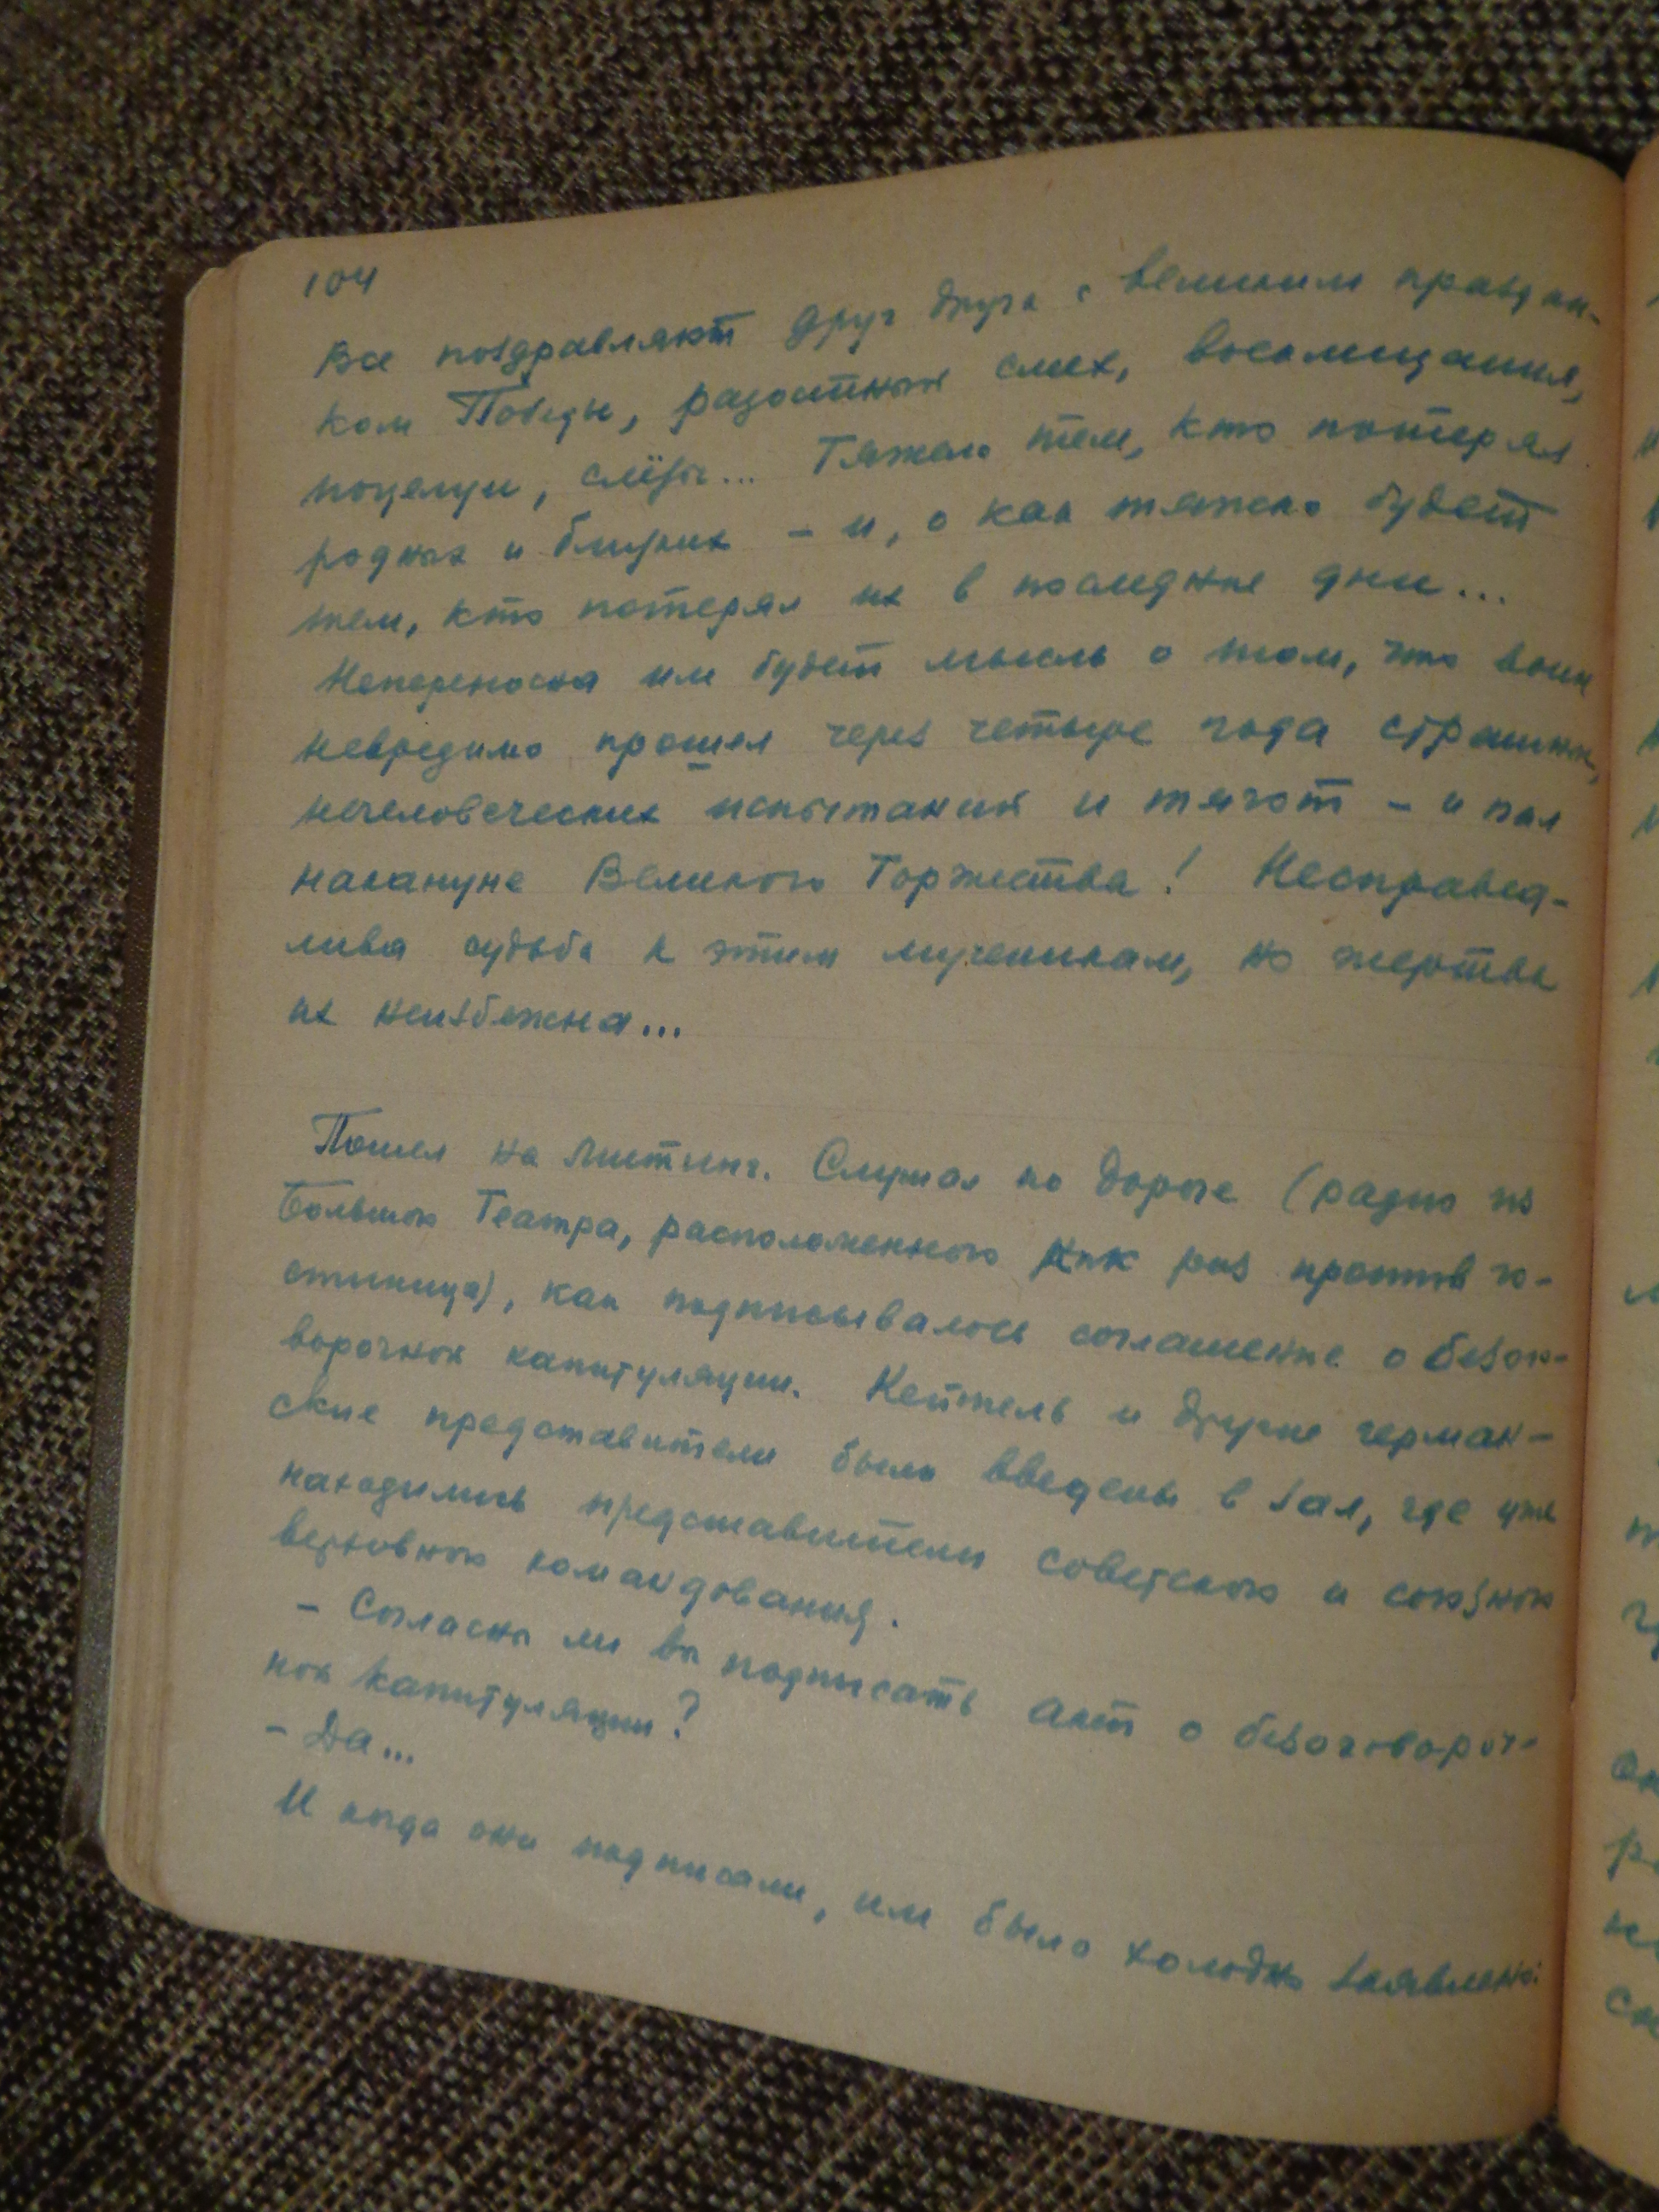 104
Все поздравляют друг друга с великим праздни-
ком Победы, радостный смех, восклицания,
поцелуи, слёзы... Тяжело тем, кто потерял
родных и близких – и, о как тяжело будет
тем, кто потерял их в последние дни...
Непереносна им будет мысль о том, что воин
невредимо прошел через четыре года страшных,
нечеловеческих испытаний и тягот – и пал
накануне Великого Торжества! Несправед-
лива судьба к этим мученикам, но жертва
их неизбежна...
Пошел на митинг. Слушал по дороге (радио из
Большого Театра, расположенного как раз против го-
стиницы), как подписывалось соглашение о безого-
ворочной капитуляции. Кейтель и другие герман-
ские представители были введены в зал, где уже
находились представители советского и союзного
верховного командования.
– Согласны ли вы подписать акт о безоговороч-
ной капитуляции?
– Да...
И когда они подписали, им было холодно заявлено: